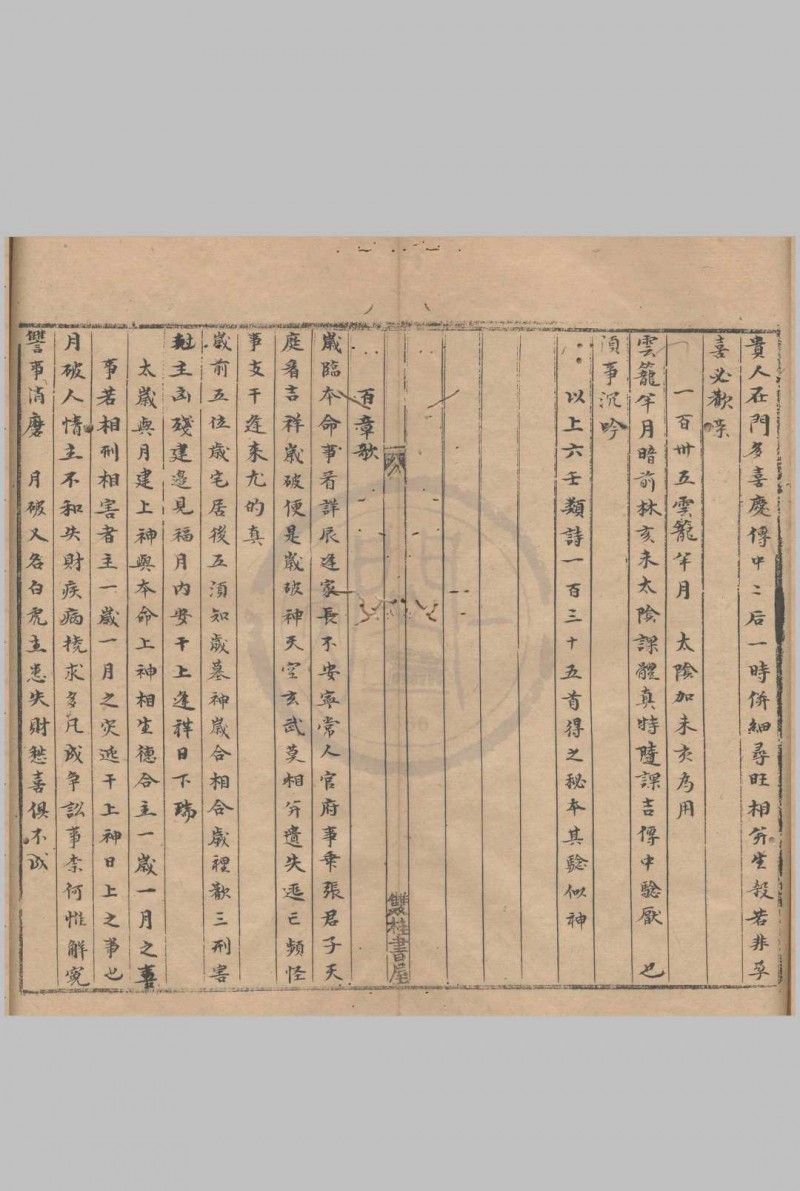 貴人在門多喜慶傳中二后一時併細尋旺相并生殺若非孕
喜必歡榮
一百卅五雲籠半月　太陰加未亥為用
雲籠半月暗前林亥未太陰課體真時隨課吉傳中驗厭也
須事沉吟
以上六壬類詩一百三十五首得之秘本其驗似神
雙桂書屋
百章歌
歲臨本命事看詳辰逢家長不安寧常人官府事乘張君子天
庭看吉祥歲破便是歲破神天空玄武莫相并遺失逃亡頻怪
事支干逢來尤的真
歲前五位歲宅居後五須知歲墓神歲合相合歲裡歡三刑害
主凶殘建逢見福月內安干上逢祥日下瑞
太歲與月建上神與本命上神相生德合主一歲一月之喜
事若相刑相害者主一歲一月之災逃干上神日上之事也
月破人情主不和失財疾病撓求多凡成爭訟事奈何惟解冤
讐事消磨　月破又名白虎主患失財愁喜俱不成